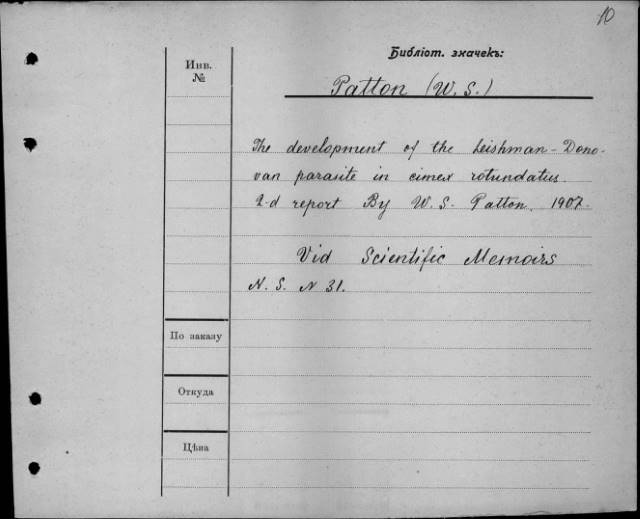 10
Библіот. значекъ:
Инв.
№
Patton (W. S.)
The development of the Leishman-Dono-
van parasite in cimex rotundatus.
2-d report By W. S. Patton. 1907.
Vid Scientific Memoirs
N. S. N 31.
По заказу
Откуда
Цѣна